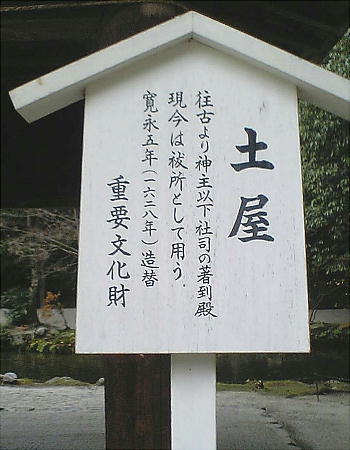 土屋
往古より神主以下社司の著到殿
現今は祓所として用う.
寛永五年(一六二八年)造替
重要文化財